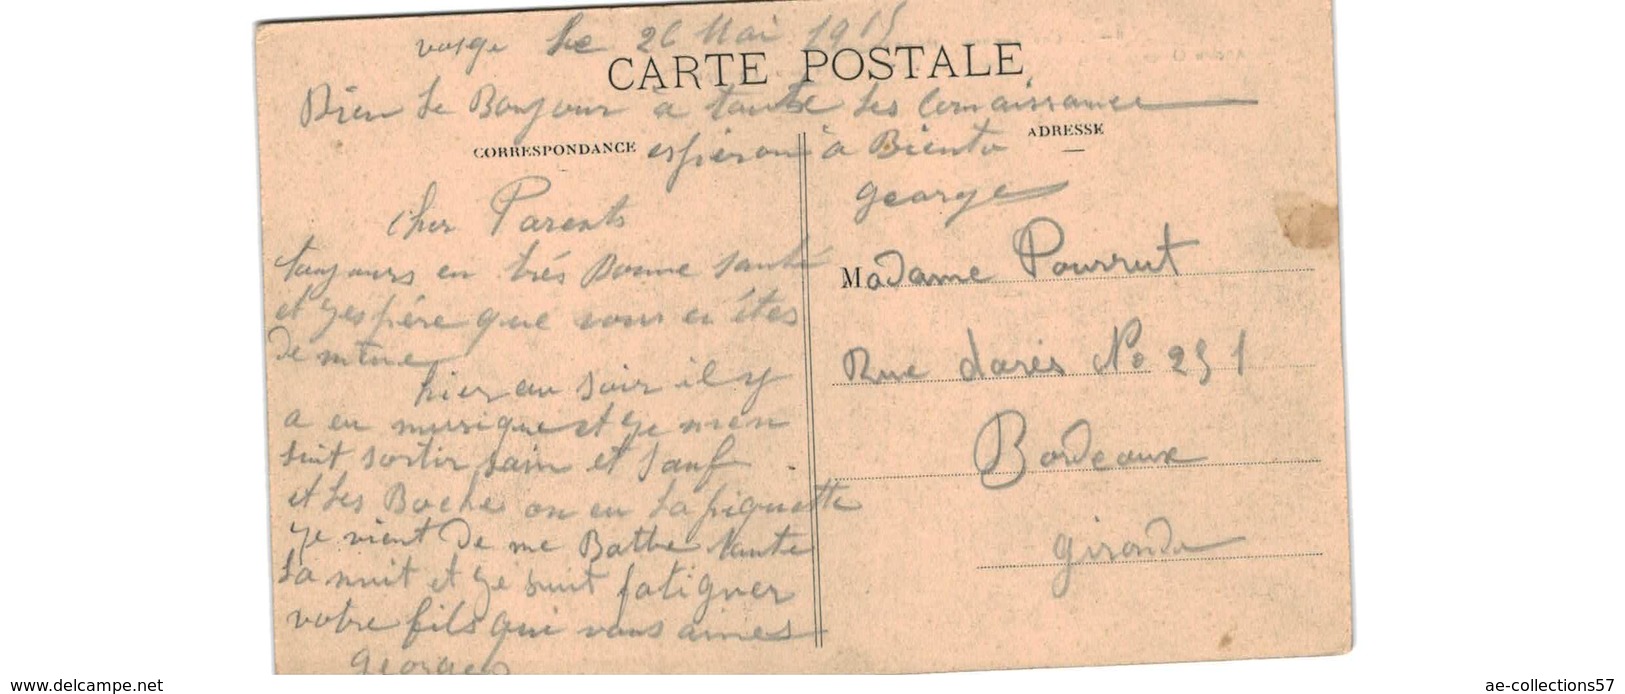 vosge Le 26 Mai 1915
CARTE POSTALE
Bien Le Bonjour a toute Les Connaissance
CORRESPONDANCE
espéron à Biento
ADRESSE
george
cher Parents
toujours en très Bonne santé
et j'espére que vous en êtes
de même
hier au soir il y
a eu musique et je men
suit sortir sain et sauf
et Les Boche on eu La piquette
je vient de me Battre toute
La nuit et je suit fatiguer
votre fils qui vous aimes
georges
Madame Pourrut
Rue darés No 251
Bordeaux
gironde
www.delcampe.net
ae-collections57